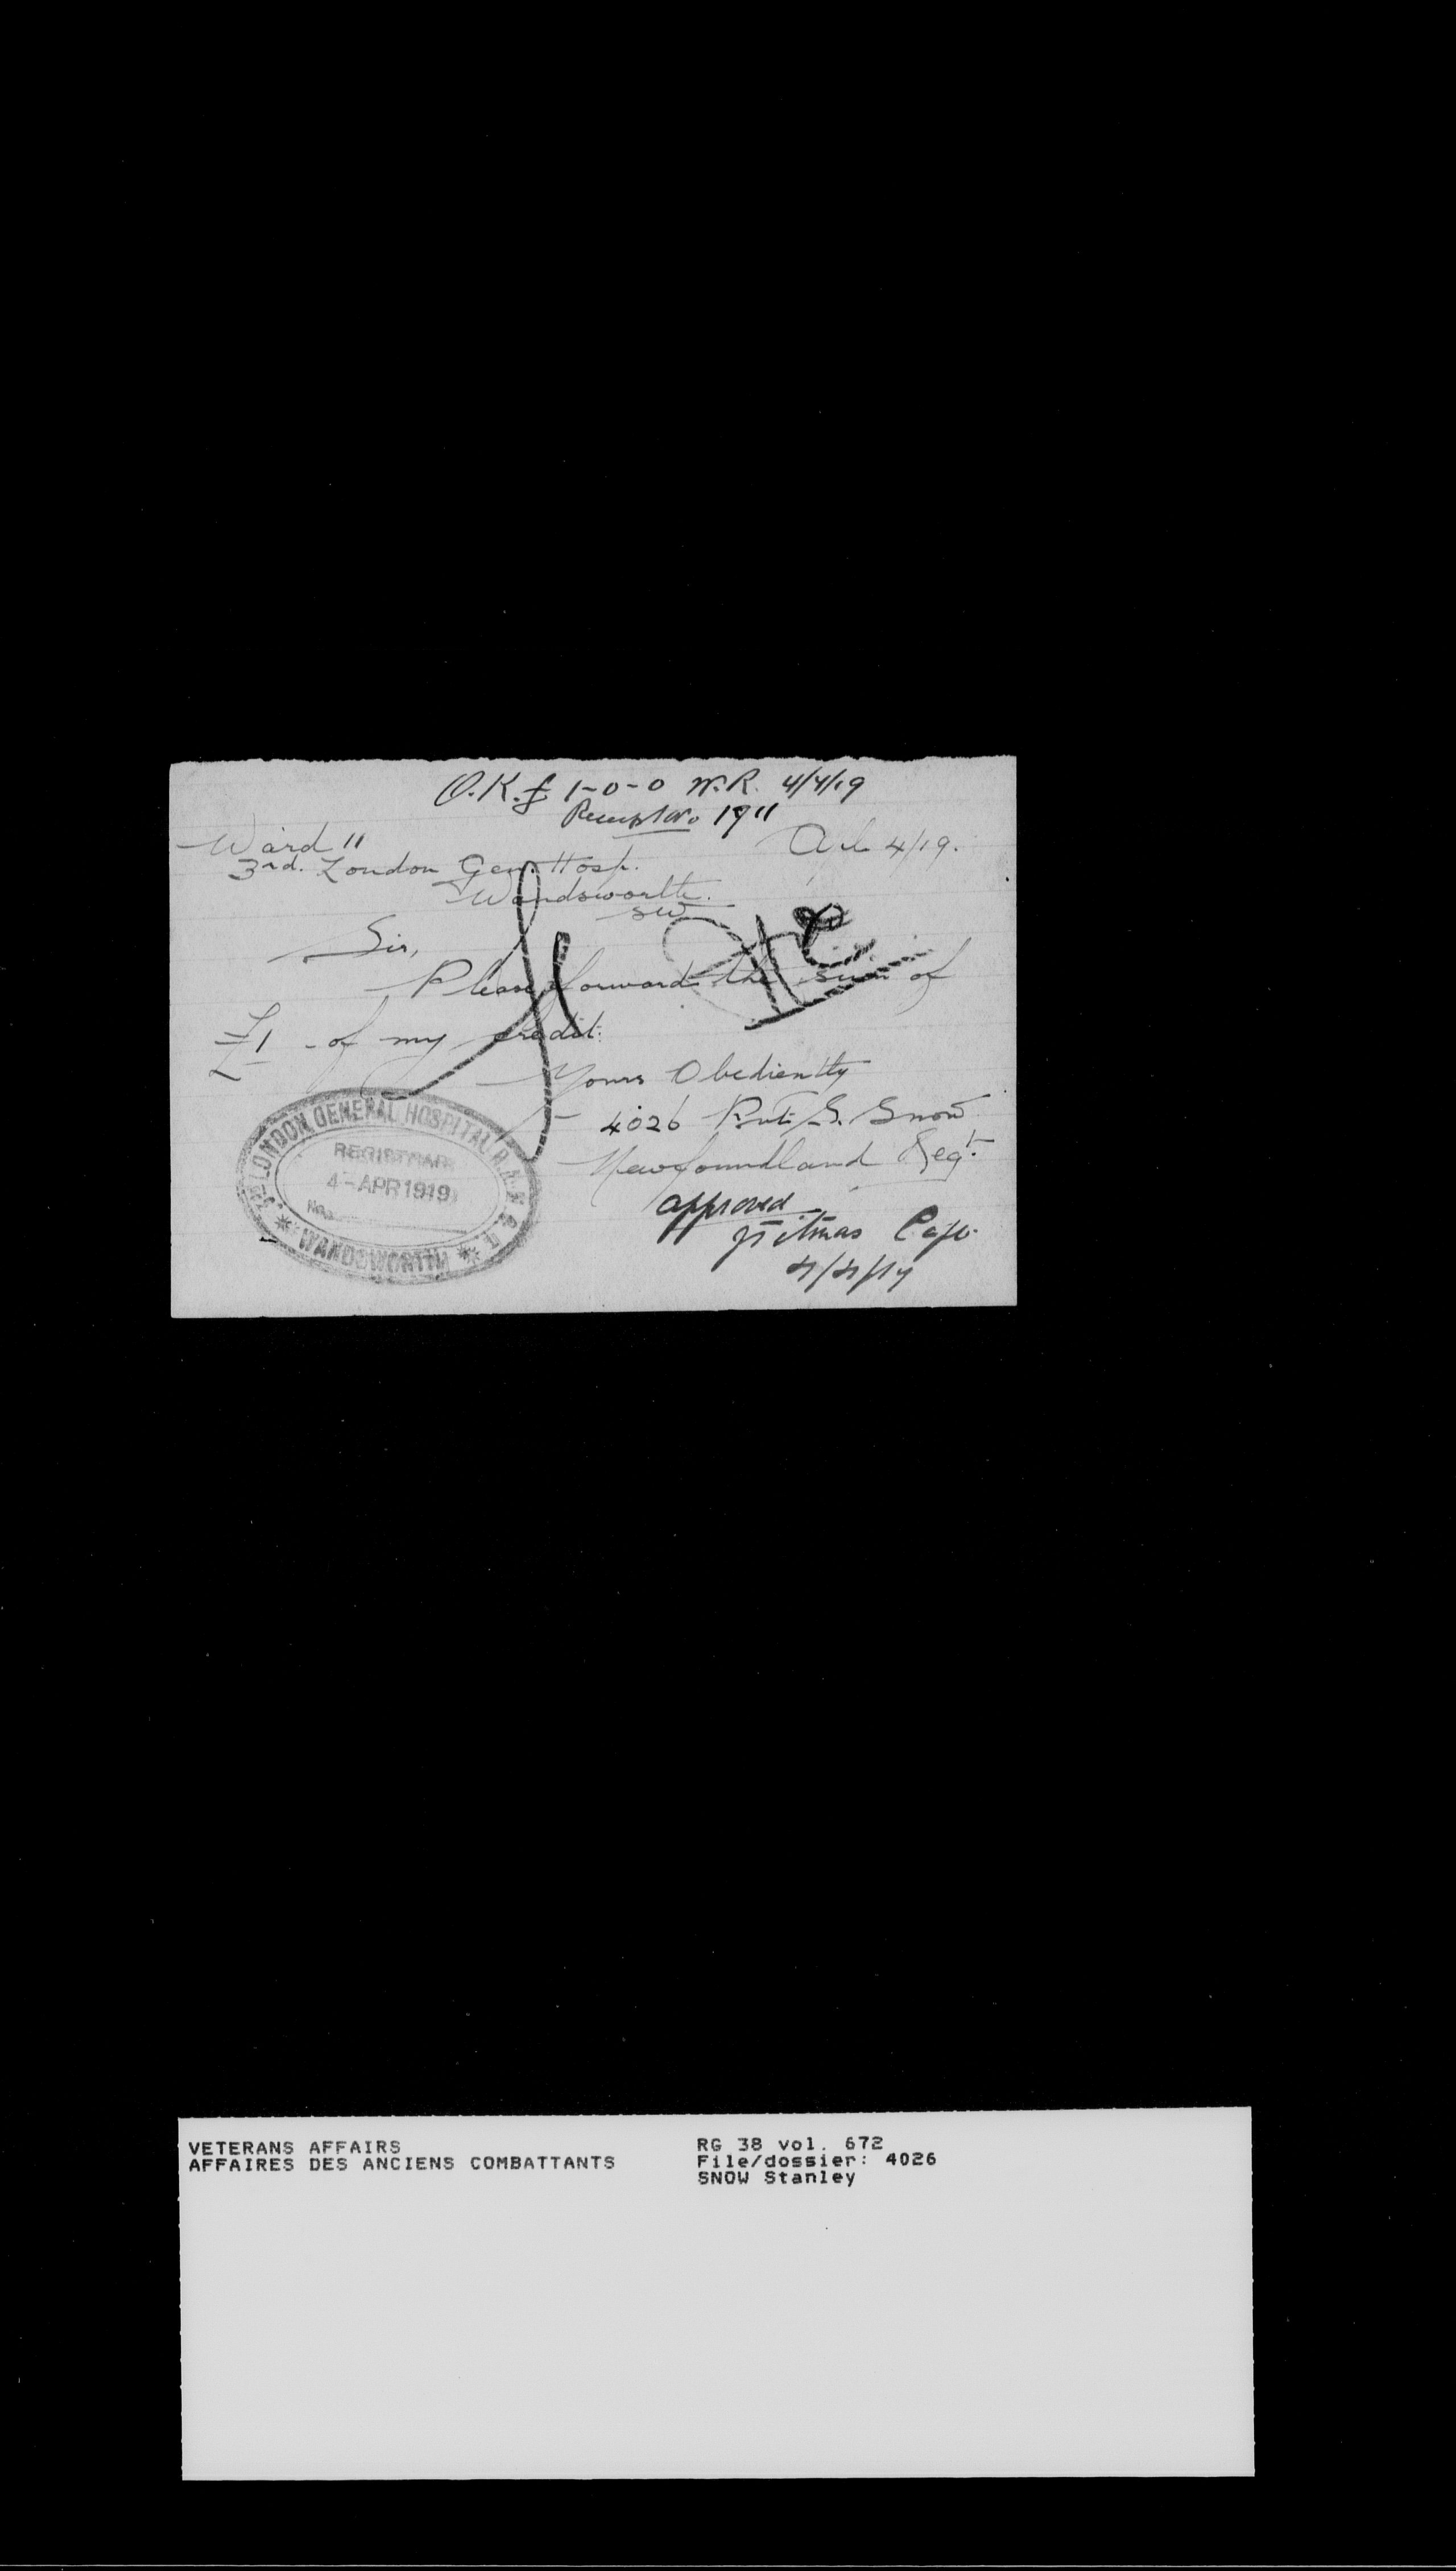 O.K. £ 1-0-0 W.R. 4/4/19
Receipt No. 1911
Ward 11
3rd. London Gen. Hosp.
4/19.
Wandsworth.
SW
Sir,
Please forward the sum of
£1 - of my credit.
Yours Obediently
4026 Pvt. S. Snow
Newfoundland Regt.
approved
Capt.
4/4/19
3RD LONDON GENERAL HOSPITAL R.A.M.C.T.
REGISTRAR
4-APR 1919
No.
WANDSWORTH
VETERANS AFFAIRS
AFFAIRES DES ANCIENS COMBATTANTS
RG 38 vol. 672
File/dossier: 4026
SNOW Stanley